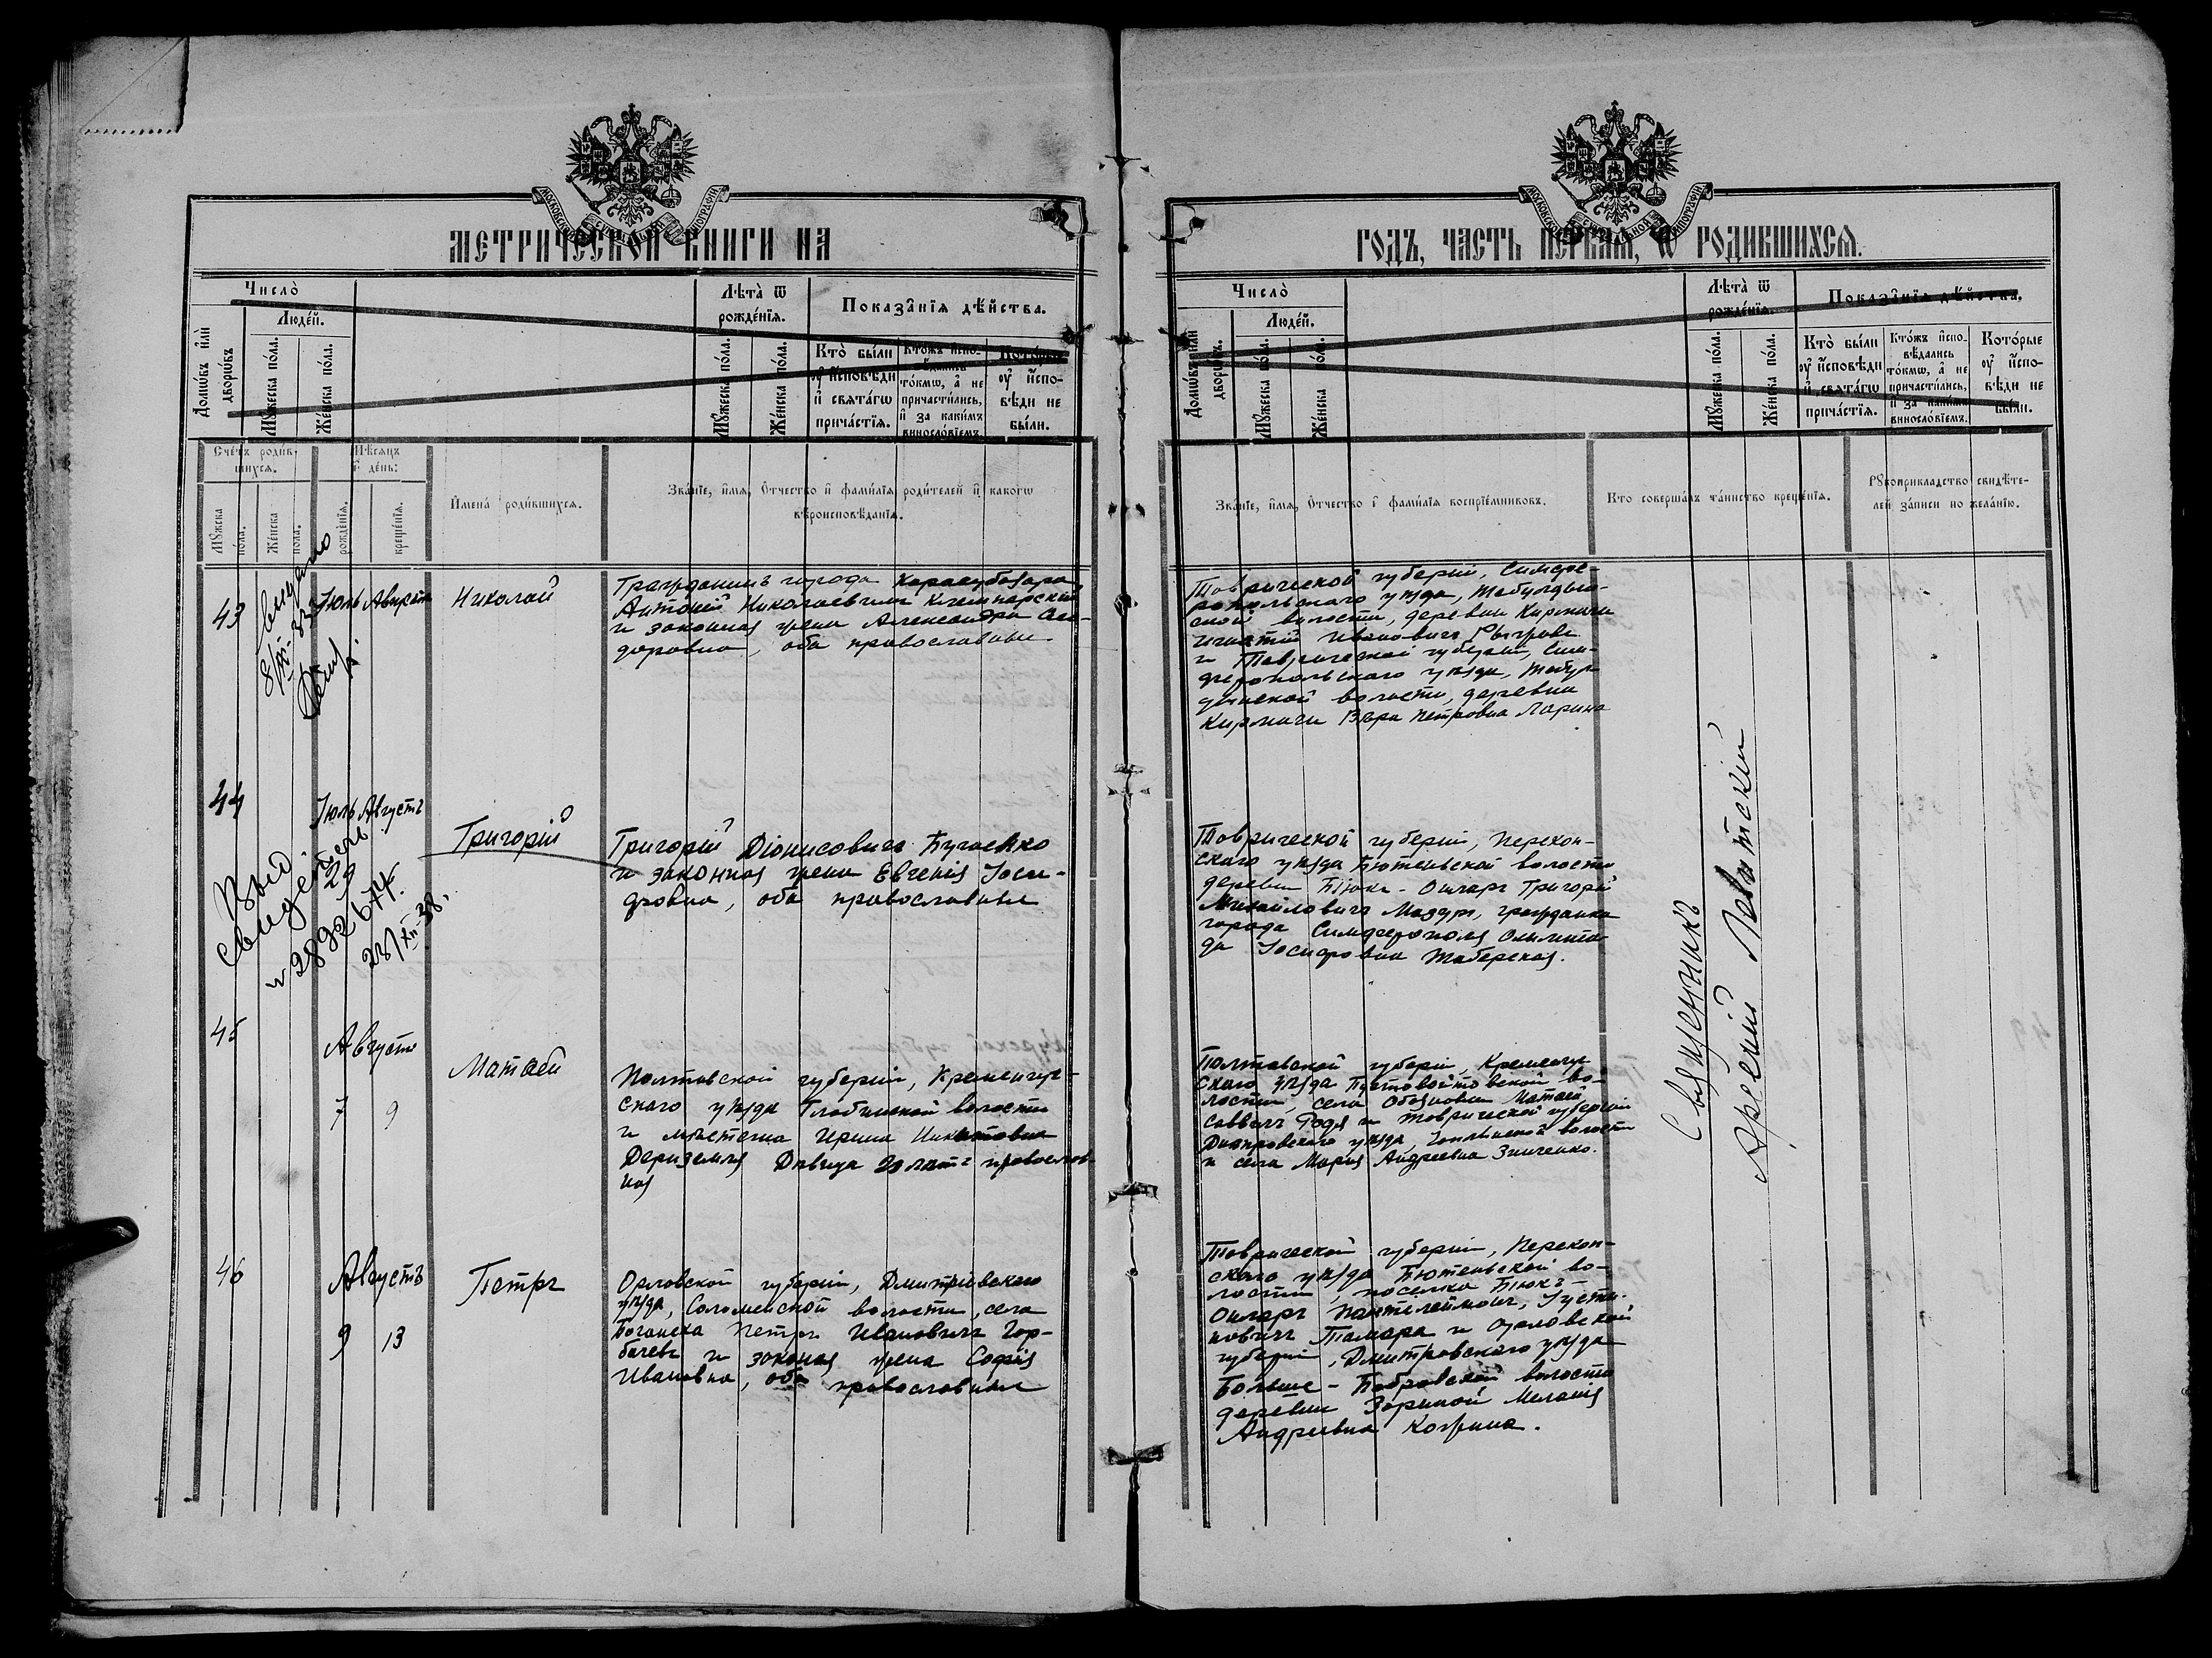 МЕТРИЧЕСКОЙ КНИГИ НА
Число̀
Домѡ́въ и҆лѝ дворѡ́въ
Люде́й.
Мꙋ́жеска по́ла.
Же́нска по́ла.
Лѣ́та ѿ рожде́нїѧ.
Мꙋ́жеска по́ла.
Же́нска по́ла.
Показа̑нїѧ дѣ́йства.
Кто̀ бы́ли
ᲂу҆ и҆́сповѣди
и҆ свѧта́гѡ
прича́стїѧ.
Кто́жъ и҆спо-
вѣ́дались
то́кмѡ, а҆ не
причасти́лись,
и҆ за каки́мъ
винослові́емъ.
Кото́рые
ᲂу҆ и҆́спо-
вѣди не
бы́ли.
Сче́тъ роди́в-
шихсѧ.
Мꙋ́жска по́ла.
Же́нска по́ла.
Мѣ́сѧцъ
и҆ де́нь:
рожде́нїѧ.
креще́нїѧ.
И҆мена̀ роди́вшихсѧ.
Зва́нїе, и҆́мѧ, ѻ҆́тчество и҆ фами́лїѧ роди́телей и҆ какогѡ
вѣроисповѣ́данїѧ.
43
8/XI-33
Іюль Августъ
Николай
Гражданинъ города Карасубазара
Антоній Николаевичъ
и законная жена Александра
доровна, оба православные
44
Выд
свидетель
№ 2892674
28/XII-38.
Іюль Августъ
29
Григорій
Григорій Діонисовичъ
и законная жена Евгенія Іоси-
фовна, оба православные
45
Августъ
7 9
Матѳей
Полтавской губерніи, Кременчуг-
скаго уѣзда Глобинской волости
и мѣстечка Ирина Никитовна
Дериземля Дѣвица 20 лѣтъ православ-
ная
46
Августъ
9 13
Петръ
Орловской губерніи, Дмитріевскаго
уѣзда, Соломенской волости, села
Петръ Ивановичъ Гор-
бачевъ и законая жена Софія
Ивановна, оба православные
ГОДЪ, ЧАСТЬ ПЕРВАѦ, Ѡ РОДИВШИХСѦ.
Число̀
Домѡ́въ и҆лѝ дворѡ́въ.
Люде́й.
Мꙋ́жеска по́ла.
Же́нска по́ла.
Лѣ́та ѿ
рожде́нїѧ.
Мꙋ́жеска по́ла.
Же́нска по́ла.
Показа̑нїѧ дѣ́йства.
Кто̀ бы́ли
ᲂу҆ и҆́сповѣди
и҆ свѧта́гѡ
прича́стїѧ.
Кто́жъ и҆спо-
вѣ́дались
то́кмѡ, а҆ не
причасти́лись,
и҆ за каки́мъ
винослові́емъ.
Кото́рые
ᲂу҆ и҆́спо-
вѣди не
бы́ли.
Зва́нїе, и҆́мѧ, ѻ҆́тчество и҆ фами́лїѧ воспрїе́мниковъ.
Кто соверша́лъ та́инство креще́нїѧ.
Рꙋкоприкладство свидѣ́те-
лей за́писи по жела́нїю.
Таврической губерніи, Симфе-
ропольскаго уѣзда, Табулдын-
ской волости, деревни Кирмачи
Игнатій Ивановичъ
и Таврической губерніи, Сим-
феропольскаго уѣзда, Табул-
дынской волости, деревни
Кирмачи Вѣра Петровна Ларина
Таврической губерніи, Перекоп-
скаго уѣзда Бютеньской волости
деревни Біюкъ-Онларъ Григорій
Михайловичъ Мазуръ, гражданка
города Симферополя Олимпіа-
да Іосифовна Таберская.
Полтавской губерніи, Кременчуг-
скаго уѣзда Пустовойтовской во-
лости, села Обозновки Матѳей
Саввичъ Родя и Таврической губерніи
Днепровскаго уѣзда, Чаплинской волости
и села Марія Андреевна Зинченко.
Таврической губерніи, Перекоп-
скаго уѣзда Бютеньской во-
лости поселка Біюкъ-
Онларъ Пантелеймонъ, Іусти-
новичъ Тамара и Орловской
губерніи, Дмитровскаго уѣзда
Больше-Бобровской волости
деревни Зориной Меланія
Андреевна Козина.
Священникъ
Арсеній Левитскій